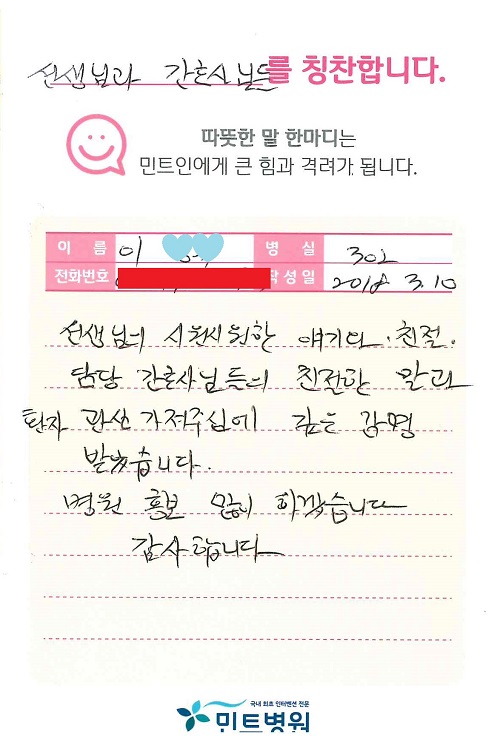 선생님과 간호사님들를 칭찬합니다.
따뜻한 말 한마디는
민트인에게 큰 힘과 격려가 됩니다.
이 름 이 병 실 302
전화번호 작성일 2018 3.10
선생님의 시원시원한 얘기와 친절.
담당 간호사님들의 친절한 말과
환자 관심 가져주심에 깊은 감명
받았습니다.
병원 홍보 많이 하겠습니다
감사합니다
국내 최초 인터벤션 전문
민트병원